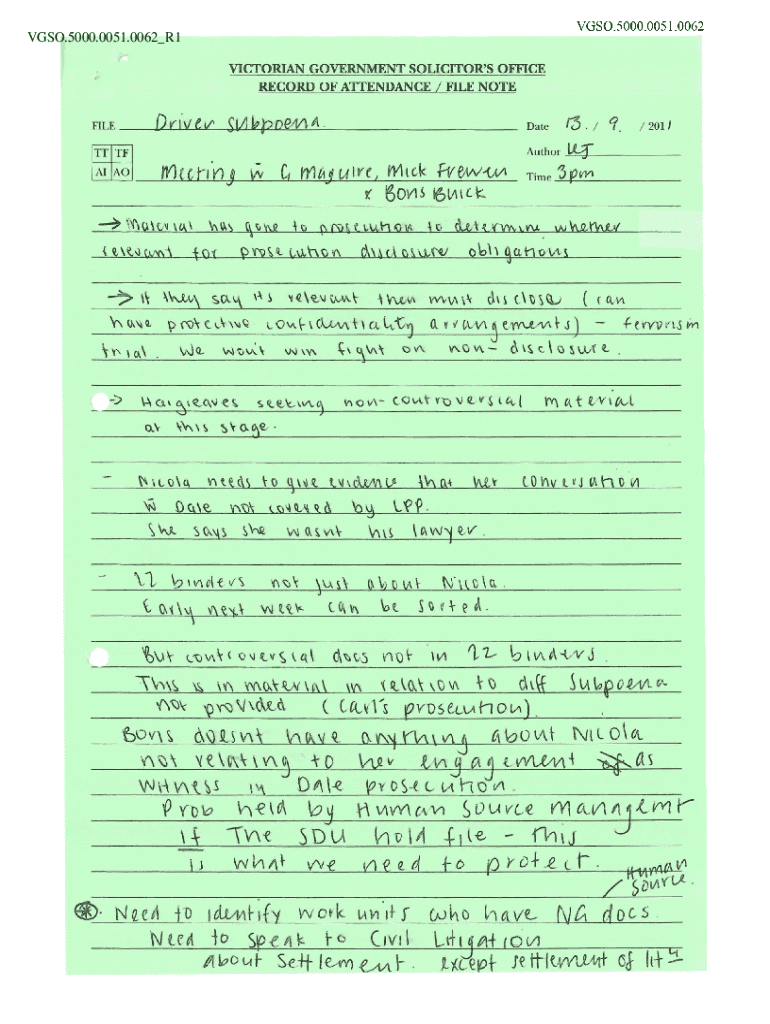 VGSO.5000.0051.0062
VGSO.5000.0051.0062_R1
VICTORIAN GOVERNMENT SOLICITOR'S OFFICE
RECORD OF ATTENDANCE / FILE NOTE
FILE Driver subpoena. Date 13. / 9. / 2011
TT TF Author
AI AO Meeting w̄ G Maguire, Mick Frewen Time 3pm
x Boris Buick
→ Material has gone to prosecution to determine whether
relevant for prosecution disclosure obligations
→ If they say its relevant then must disclose (can
have protective confidentiality arrangements) – terrorism
trial. We won't win fight on non-disclosure.
→ Hargreaves seeking non-controversial material
at this stage.
- Nicola needs to give evidence that her conversation
w̄ Dale not covered by LPP.
She says she wasnt his lawyer.
- 22 binders not just about Nicola.
Early next week can be sorted.
But controversial docs not in 22 binders.
This is in material in relation to diff subpoena
not provided (Carl's prosecution).
Boris doesnt have anything about Nicola
not relating to her engagement as
witness in Dale prosecution.
Prob held by Human Source Managemt
If The SDU hold file - this
is what we need to protect.
Human
Source.
⊛. Need to identify work units who have NG docs.
Need to speak to Civil Litigation
about Settlement. except settlement of lit y